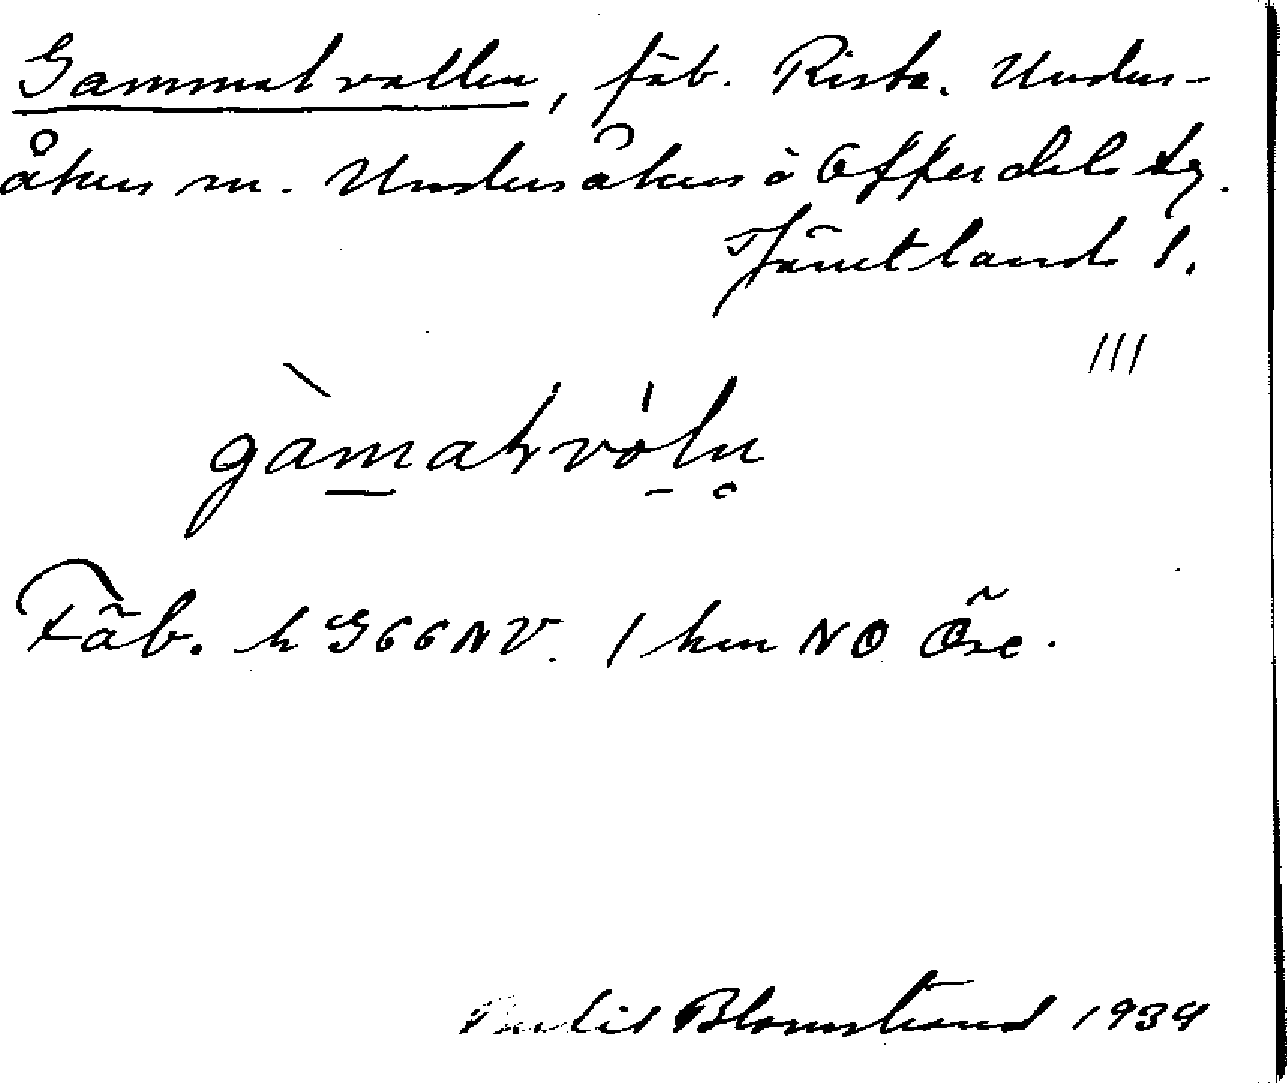 Gammalvallen, fäb. Rista. Unders-
åkers sn. Undersåkers o Offerdals tg.
Jämtlands l.
III
gàmaḷvo̱ln̥
Fäb. k G66NV. 1 km NO Öse.
Blomstrand 1934